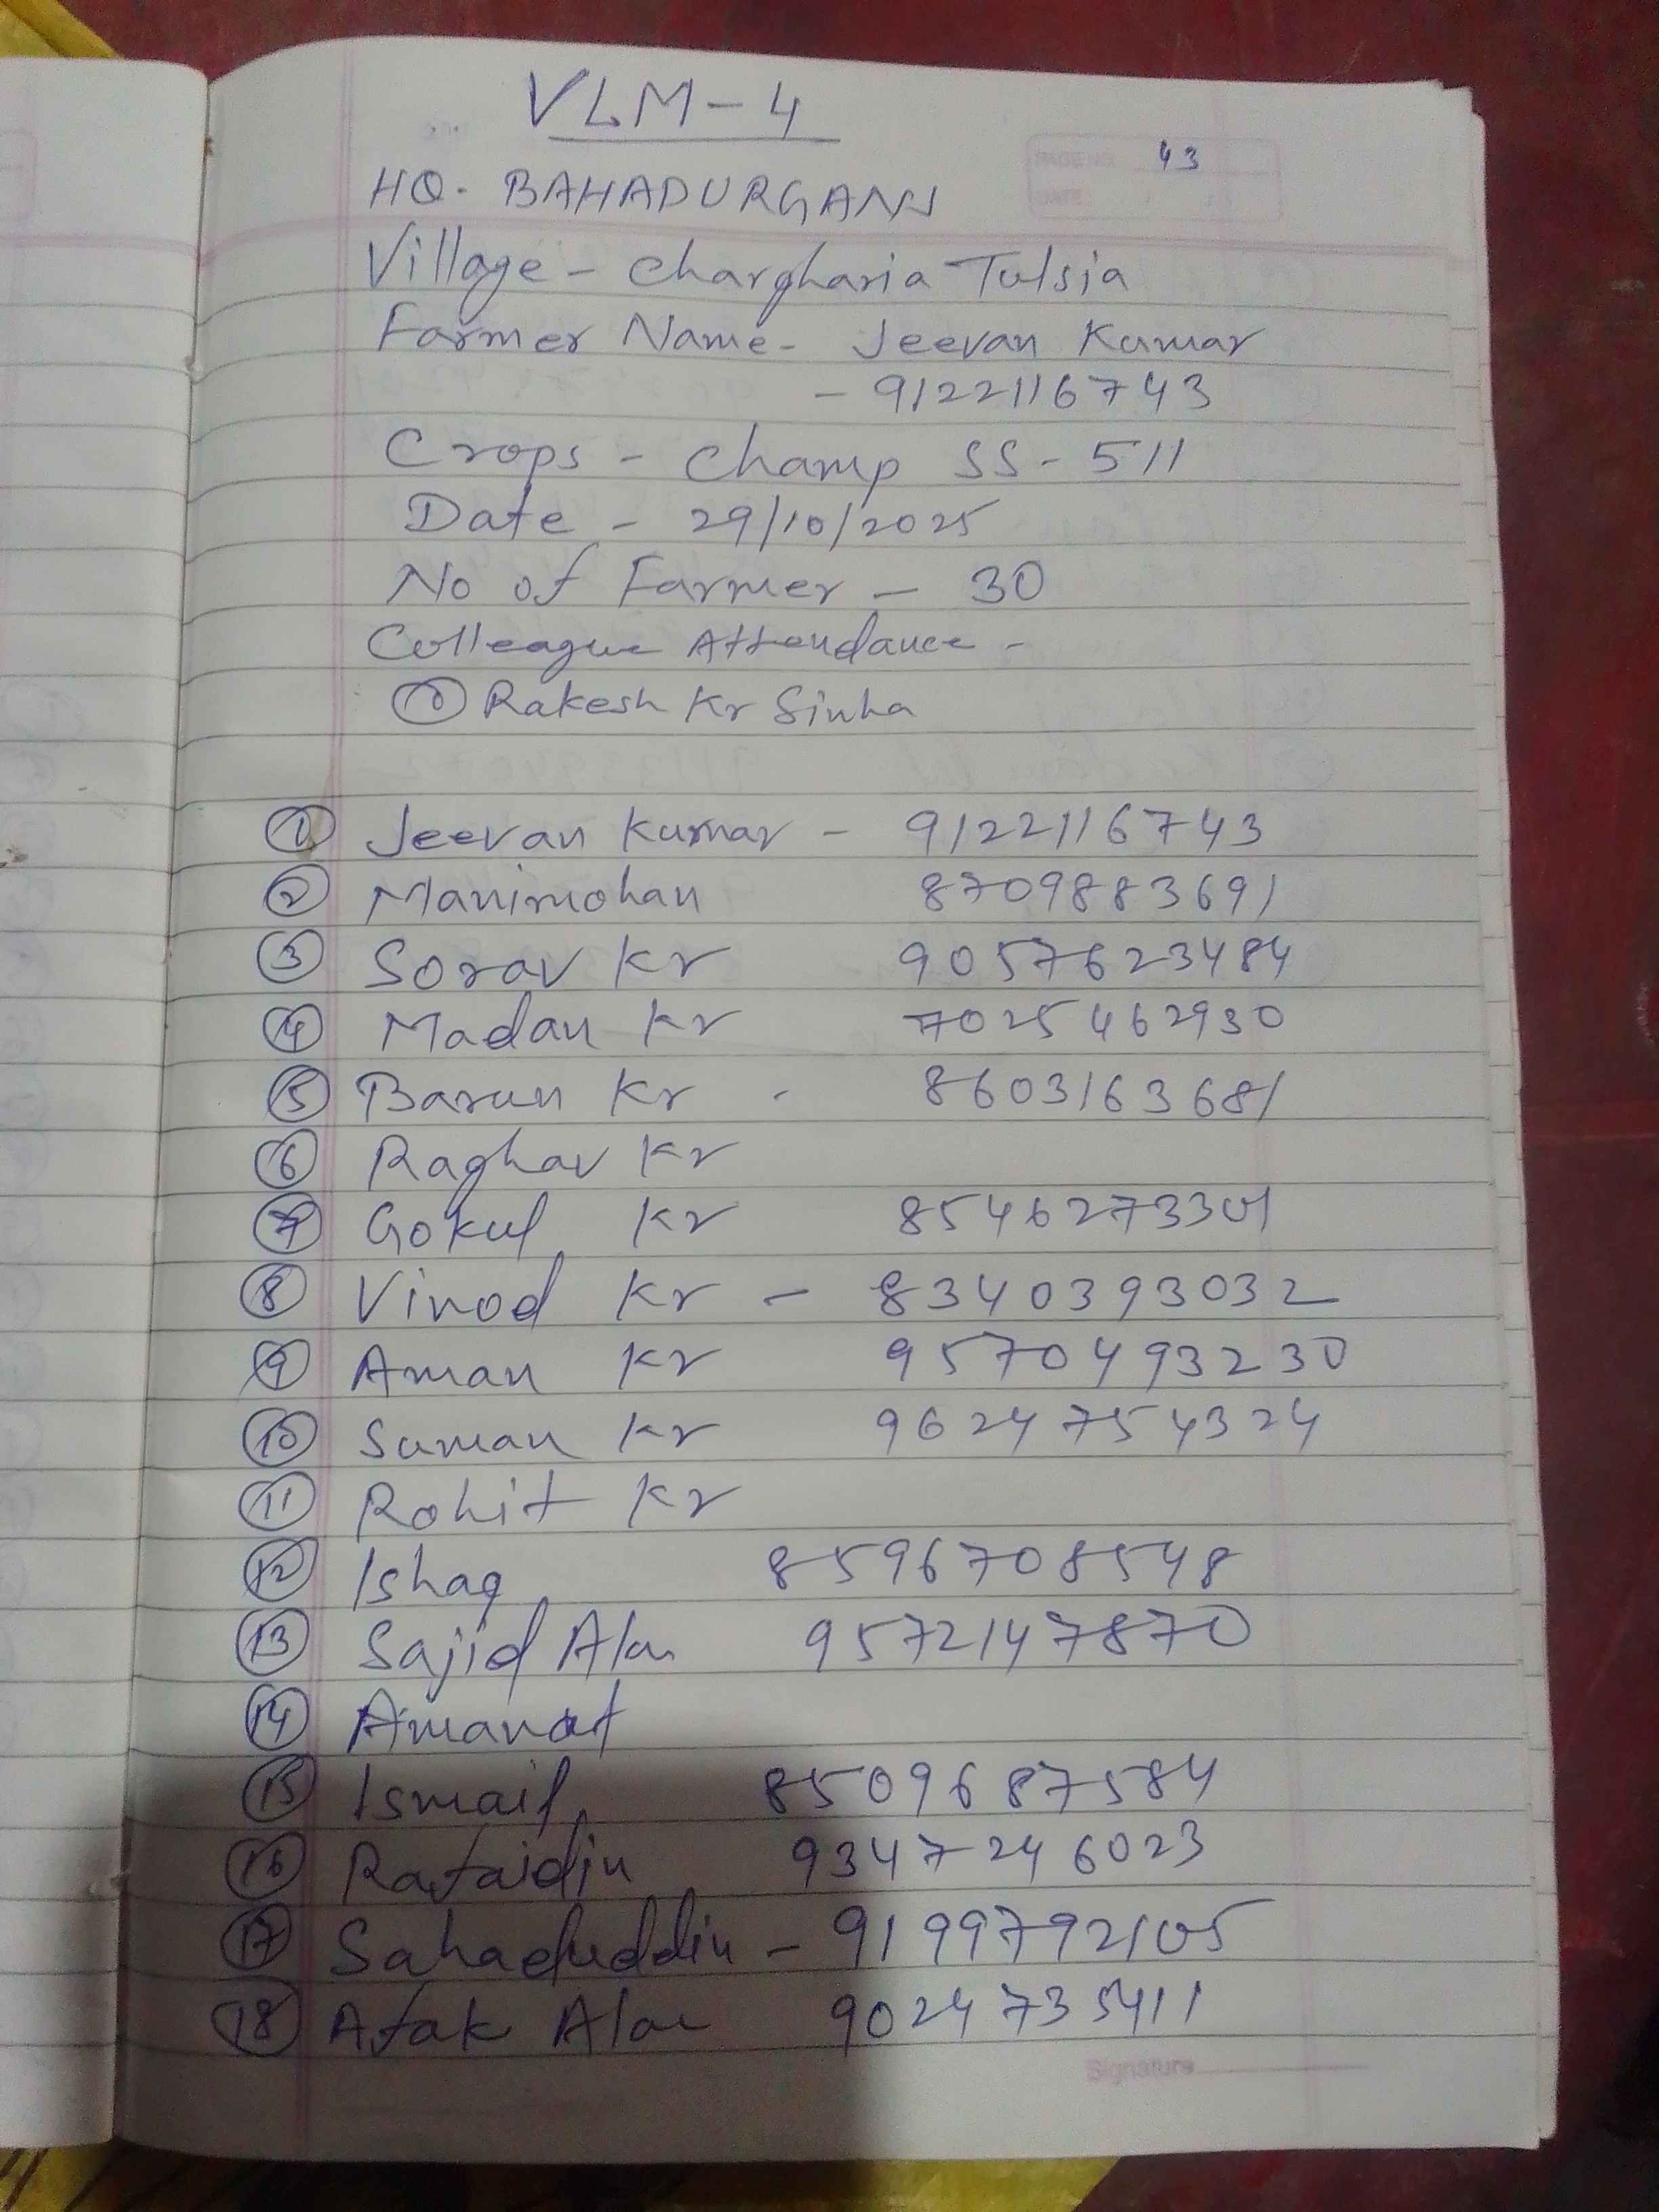 VLM-4
PAGE NO. 43
DATE
HQ. BAHADURGANJ
Village - Chargharia Tulsia
Farmer Name - Jeevan Kumar
- 9122116743
Crops - Champ SS-511
Date - 29/10/2025
No of Farmer - 30
Colleague Attendance -
① Rakesh Kr Sinha
① Jeevan Kumar - 9122116743
② Manimohan 8709883691
③ Sorav Kr 9057623484
④ Madan Kr 7025462930
⑤ Barun Kr - 8603163681
⑥ Raghav Kr
⑦ Gokul Kr 8546273301
⑧ Vinod Kr - 8340393032
⑨ Aman Kr 9570493230
⑩ Suman Kr 9624754324
⑪ Rohit Kr
⑫ Ishaq 8596708548
⑬ Sajid Alam 9572147870
⑭ Amanat
⑮ Ismail 8509687584
⑯ Rafaidin 9347246023
⑰ Sahaduddin - 9199792105
⑱ Afak Alam 9024735411
Signature